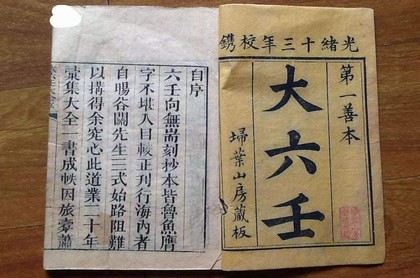 光緒十三年校鐫
第一善本
大六壬
埽葉山房藏板
自序
六壬向無耑刻抄本皆魯魚贗
字不堪入目較正刊行海內者
自暘谷關先生三式始路阻難
以搆得余究心此道業二十年
彙集大全一書成帙因旅橐蕭